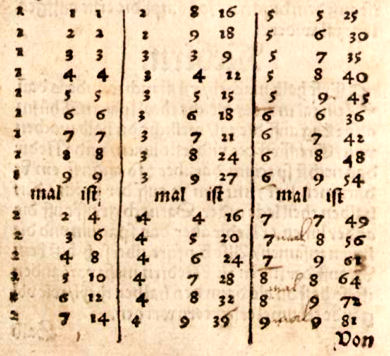 1 1 1 2 8 16 5 5 25
1 2 2 2 9 18 5 6 30
1 3 3 3 3 9 5 7 35
1 4 4 3 4 12 5 8 40
1 5 5 3 5 15 5 9 45
1 6 6 3 6 18 6 6 36
1 7 7 3 7 21 6 7 42
1 8 8 3 8 24 6 8 48
1 9 9 3 9 27 6 9 54
mal ist mal ist mal ist
2 2 4 4 4 16 7 7 49
2 3 6 4 5 20 7 mal 8 56
2 4 8 4 6 24 7 9 61
2 5 10 4 7 28 8 mal 8 64
2 6 12 4 8 32 8 9 72
2 7 14 4 9 39 9 mal 9 81
Von